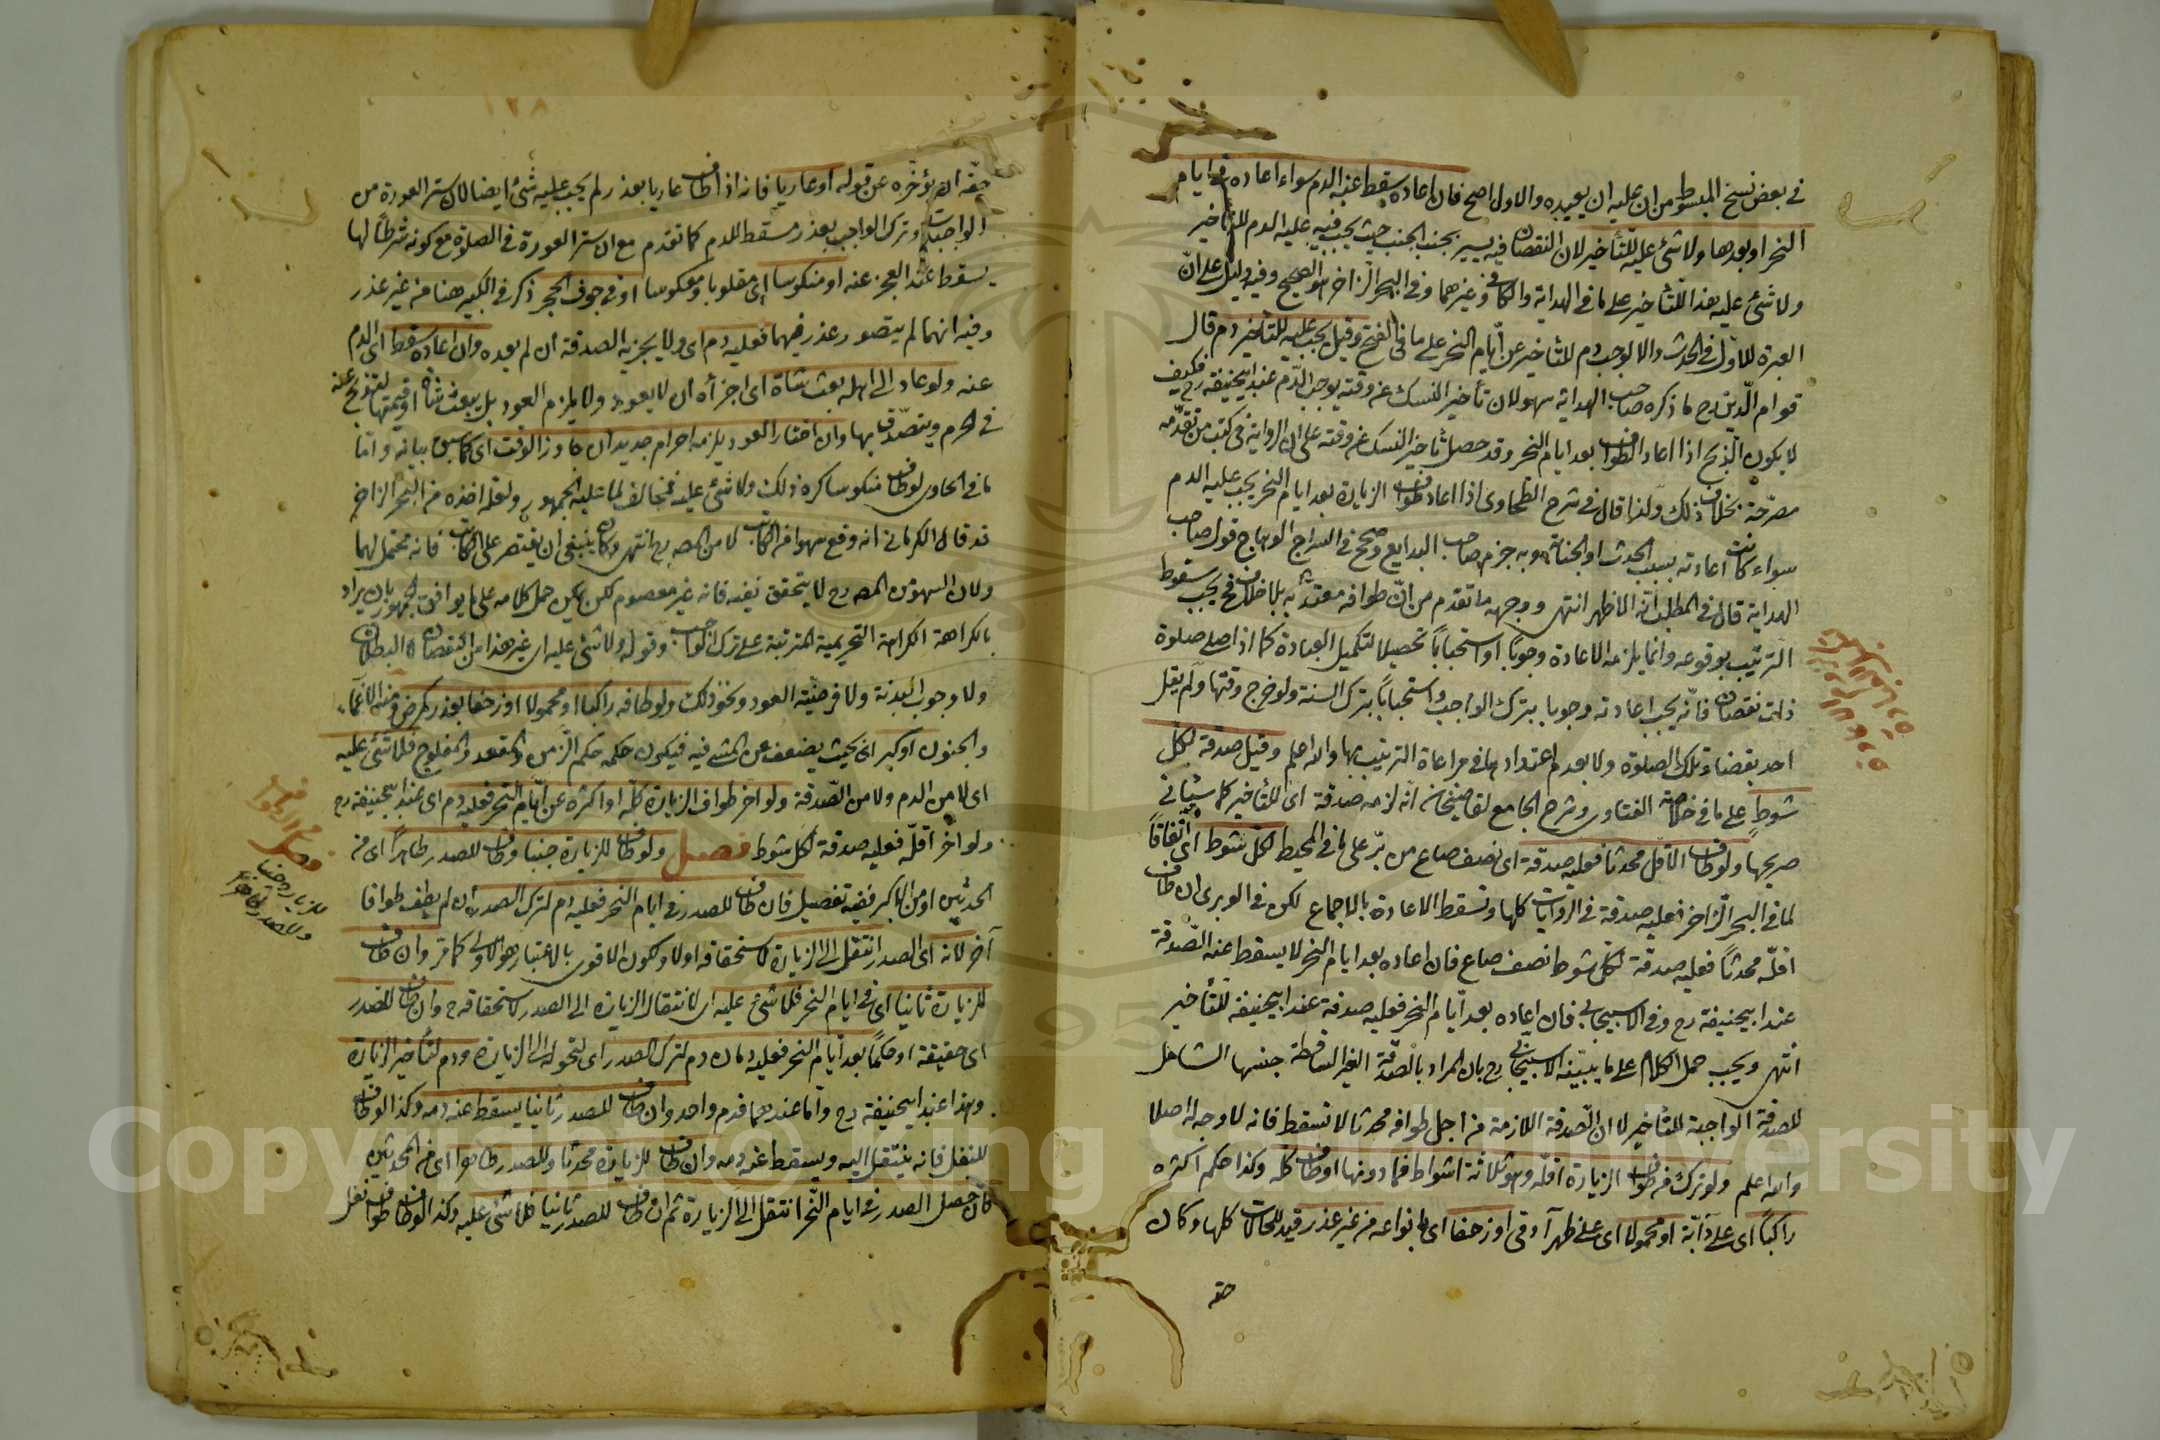 في بعض نسخ المبسوط من ان عليه ان يعيده والاول اصح فان اعاده سقط عنه الدم سواء اعاده في ايام
النحر او بعدها ولا شئ عليه للتأخير لان النقصان فيه يسير بجنب الجنب حيث يجب فيه عليه الدم للتأخير
ولا شئ عليه بهذا التأخير على ما في الهداية والكافي وغيرهما وفي البحر الزاخر هو الصحيح وفيه دليل على ان
العبرة للاول في الحدث والا لوجب دم للتأخير عن ايام النحر على ما في الفتح وقيل يجب عليه للتأخير دم قال
قوام الدين رح ما ذكره صاحب الهداية سهو لان تأخير النسك عن وقته يوجب الدم عند ابيحنيفة رح فكيف
لا يكون الذبح اذا اعاد الطواف بعد ايام النحر وقد حصل تأخير النسك عن وقته على ان الرواية في كتب من تقدمه
مصرحة بخلاف ذلك ولذا قال في شرح الطحاوى اذا اعاد طواف الزيارة بعد ايام النحر يجب عليه الدم
سواء كانت اعادته بسبب الحدث او الجنابة وبه جزم صاحب البدايع وصحح في السراج الوهاج قول صاحب
الهداية قال في المطلب انه الاظهر انتهى ووجهه ما تقدم من ان طوافه معتد به بلا خلاف فيجب سقوط
الترتيب بوقوعه وانما يلزمه الاعادة وجوبا او استحبابا تحصيلا لتكميل العبادة كما اذا صلى صلوة
ذات نقصان فانه يجب اعادته وجوبا بترك الواجب واستحبابا بترك السنة ولو خرج وقتها ولم يقل
احد بقضاء تلك الصلوة ولا بعدم اعتدادها في مراعاة الترتيب بها والله اعلم وقيل صدقة لكل
شوط على ما في خلاصة الفتاوى وشرح الجامع لقاضيخان انه لزمه صدقة اى للتأخير كما سيأتي
صريحا ولو طاف الاقل محدثا فعليه صدقة اى نصف صاع من بر على ما في المحيط لكل شوط اى اتفاقا
لما في البحر الزاخر فعليه صدقة في الروايات كلها وتسقط الاعادة بالاجماع لكن في الوبرى ان طاف
اقله محدثا فعليه صدقة لكل شوط نصف صاع فان اعاده بعد ايام النحر لا يسقط عنه الصدقة
عند ابيحنيفة رح وفي الاسبيجابي فان اعاده بعد ايام النحر فعليه صدقة عند ابيحنيفة للتأخير
انتهى ويجب حمل الكلام على ما يبينه الاسبيجابي رح بان المراد بالصدقة الغير الساقطة جنسها الشامل
للصدقة الواجبة للتأخير لا ان الصدقة اللازمة من اجل طوافه محدثا لا تسقط فانه لا وجه له اصلا
والله اعلم ولو ترك من طواف الزيارة اقله وهو ثلاثة اشواط فما دونها او طاف كله وكذا حكم اكثره
راكبا اى على دابة او محمولا اى على ظهر آدمى او زحفا اى بانواعه من غير عذر قيد للحالات كلها وكان
حقه
١٢٨
حقه ان يؤخره عن قوله او عاريا فانه اذا طاف عاريا بعذر لم يجب عليه شئ ايضا لان ستر العورة من
الواجبات وترك الواجب بعذر مسقط للدم كما تقدم مع ان ستر العورة في الصلوة مع كونه شرطا لها
يسقط عند العجز عنه او منكوسا اى مقلوبا ومعكوسا او في جوف الحجر ذكر في الكبير هنا من غير عذر
وفيه انهما لم يتصور عذر فيهما فعليه دم اى ولا يجزيه الصدقة ان لم يعده وان اعاده سقط اى الدم
عنه ولو عاد الى اهله بعث شاة اى اجزأه ان لا يعود ولا يلزم العود بل يبعث شاة او قيمتها لتذبح عنه
في الحرم ويتصدق بها وان اختار العود يلزمه احرام جديد ان جاوز الوقت اى كما سبق بيانه واما
ما في الحاوى لو طاف منكوسا كره ذلك ولا شئ عليه فمخالف لما عليه الجمهور ولعله اخذه من البحر الزاخر
قد قال الكرماني انه وقع سهوا من الكاتب لا من المص رح انتهى وكان ينبغى ان يقتصر على الكاتب فانه محتمل لهما
ولان السهو من المص رح لا يتحقق نفيه فانه غير معصوم لكن يمكن حمل كلامه على ما يوافق الجمهور بان يراد
بالكراهة الكراهة التحريمية المترتبة على ترك الواجب وقوله ولا شئ عليه اى غير هذا من النقصان لا البطلان
ولا وجوب البدنة ولا فرضية العود ونحو ذلك ولو طافه راكبا او محمولا او زحفا بعذر كمرض ومنه الاغماء
والجنون او كبر اى بحيث يضعف عن المشي فيه فيكون حكمه حكم الزمن والمقعد والمفلوج فلا شئ عليه
اى لا من الدم ولا من الصدقة ولو اخر طواف الزيارة كله او اكثره عن ايام النحر فعليه دم اى عند ابيحنيفة رح
ولو اخر اقله فعليه صدقة لكل شوط فصل ولو طاف للزيارة جنبا وطاف للصدر طاهرا اى من
الحدثين او من الاكبر ففيه تفصيل فان طاف للصدر في ايام النحر فعليه دم لترك الصدر ان لم يطف طوافا
آخر لانه اى الصدر انتقل الى الزيارة لاستحقاقه اولا ولكون الاقوى بالاعتبار هو الاولى كما مر وان طاف
للزيارة ثانيا اى في ايام النحر فلا شئ عليه اى لانتقال الزيارة الى الصدر لاستحقاقه ح وان طاف للصدر
اى حقيقة او حكما بعد ايام النحر فعليه دمان دم لترك الصدر اى لتحوله الى الزيارة ودم لتأخير الزيارة
وهذا عند ابيحنيفة رح واما عندهما فدم واحد وان طاف للصدر ثانيا يسقط عنه دمه وكذا لو طاف
للنفل فانه ينتقل اليه ويسقط عنه دمه وان طاف للزيارة محدثا وللصدر طاهرا اى من الحدثين
فان حصل الصدر في ايام النحر انتقل الى الزيارة ثم ان طاف للصدر ثانيا فلا شئ عليه وكذا لو طاف طواف نفل